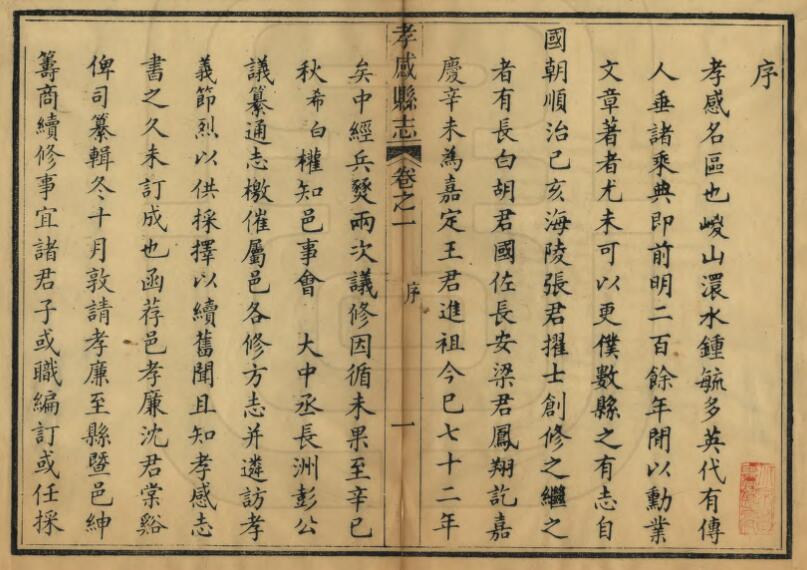 序
孝感名區也㟲山澴水鍾毓多英代有傳
人垂諸乘典即前明二百餘年間以勳業
文章著者尤未可以更僕數縣之有志自
國朝順治己亥海陵張君擢士創修之繼之
者有長白胡君國佐長安梁君鳳翔訖嘉
慶辛未為嘉定王君進祖今已七十二年
孝感縣志 卷之一 序 一
矣中經兵燹兩次議修因循未果至辛巳
秋希白權知邑事會 大中丞長洲彭公
議纂通志檄催屬邑各修方志并遴訪孝
義節烈以供採擇以續舊聞且知孝感志
書之久未訂成也函荐邑孝廉沈君棠谿
俾司纂輯冬十月敦請孝廉至縣暨邑紳
籌商續修事宜諸君子或職編訂或任採